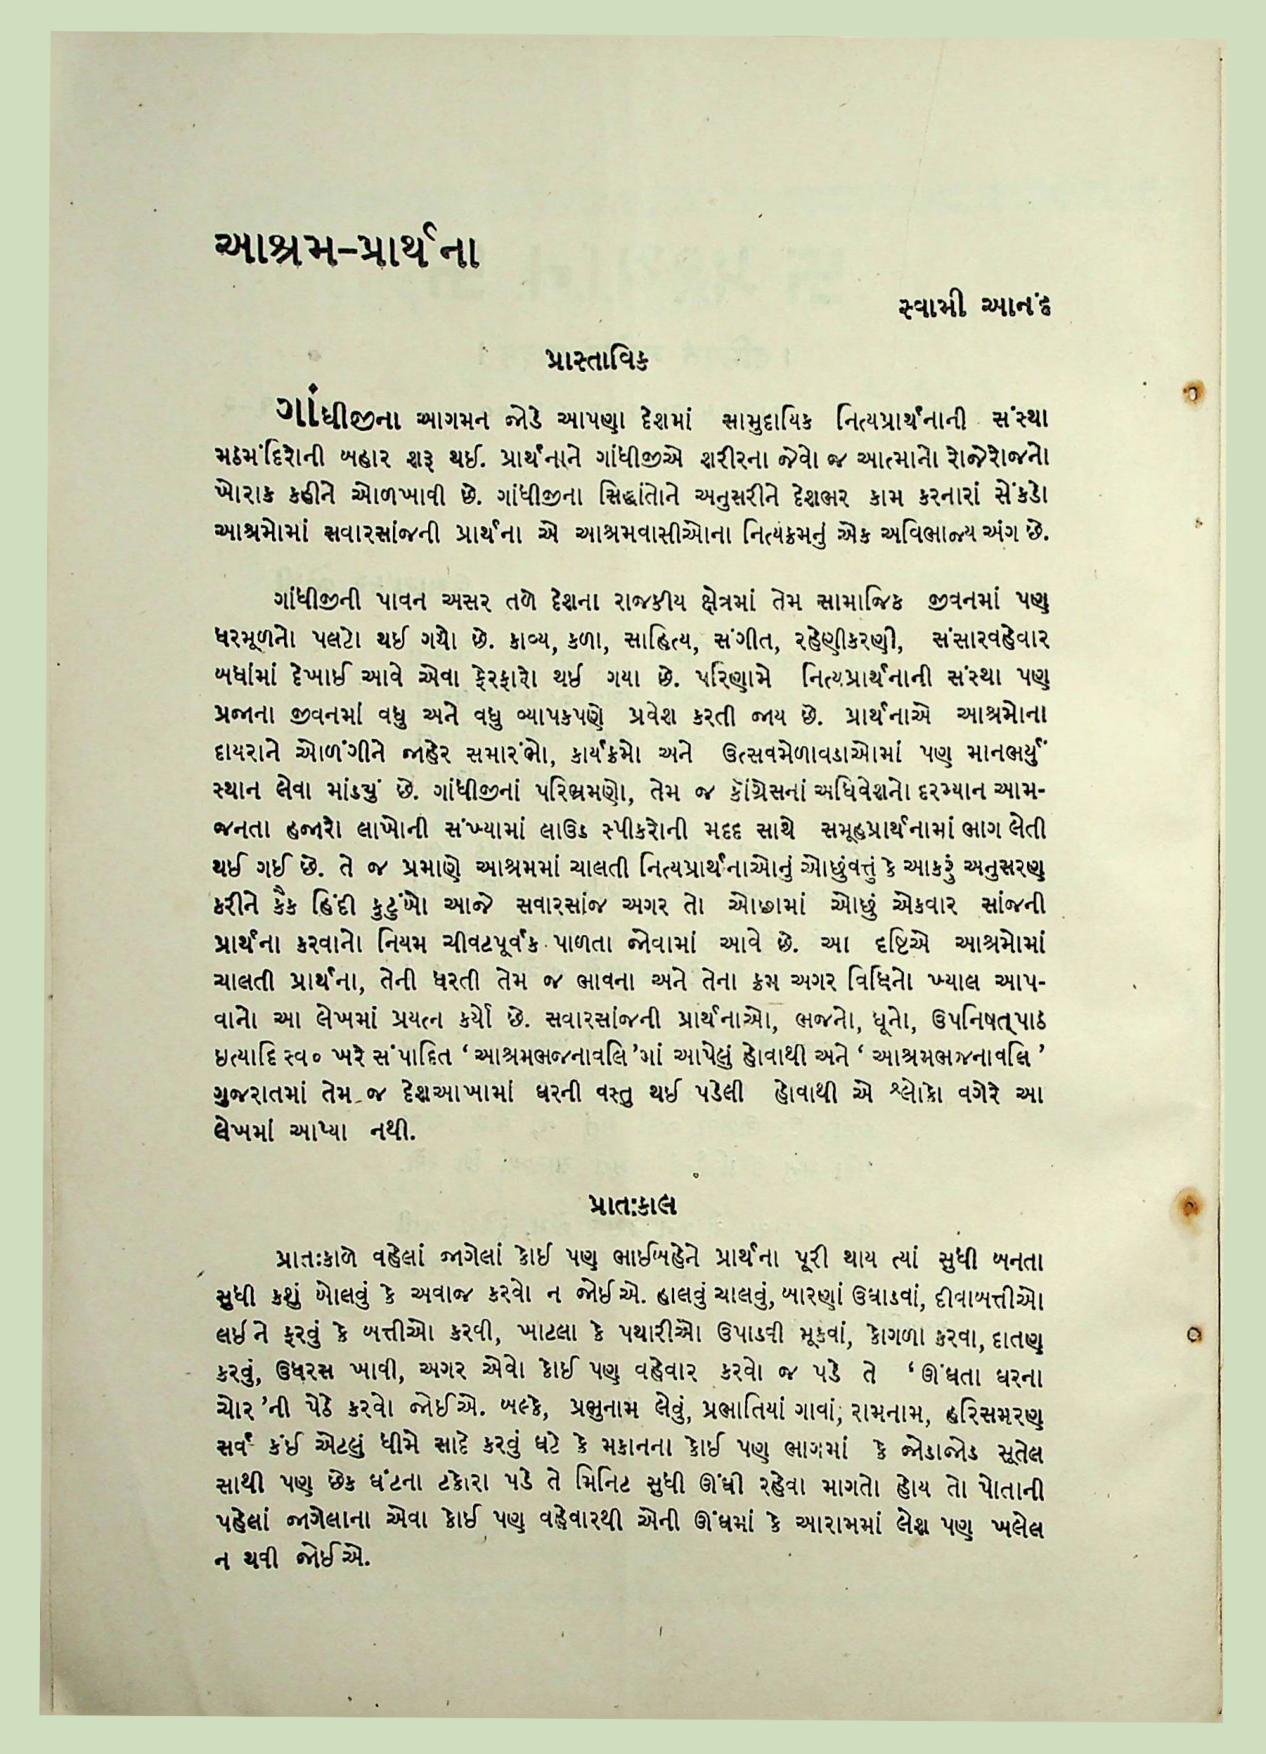 આશ્રમ-પ્રાર્થના
સ્વામી આનંદ
પ્રાસ્તાવિક
ગાંધીજીના આગમન જોડે આપણા દેશમાં સામુદાયિક નિત્યપ્રાર્થનાની સંસ્થા
મઠમંદિરોની બહાર શરૂ થઈ. પ્રાર્થનાને ગાંધીજીએ શરીરના જેવો જ આત્માનો રોજેરોજનો
ખોરાક કહીને ઓળખાવી છે. ગાંધીજીના સિદ્ધાંતોને અનુસરીને દેશભર કામ કરનારાં સેંકડો
આશ્રમોમાં સવારસાંજની પ્રાર્થના એ આશ્રમવાસીઓના નિત્યક્રમનું એક અવિભાજ્ય અંગ છે.
ગાંધીજીની પાવન અસર તળે દેશના રાજકીય ક્ષેત્રમાં તેમ સામાજિક જીવનમાં પણ
ધરમૂળનો પલટો થઈ ગયો છે. કાવ્ય, કળા, સાહિત્ય, સંગીત, રહેણીકરણી, સંસારવહેવાર
બધાંમાં દેખાઈ આવે એવા ફેરફારો થઈ ગયા છે. પરિણામે નિત્યપ્રાર્થનાની સંસ્થા પણ
પ્રજાના જીવનમાં વધુ અને વધુ વ્યાપકપણે પ્રવેશ કરતી જાય છે. પ્રાર્થનાએ આશ્રમોના
દાયરાને ઓળંગીને જાહેર સમારંભો, કાર્યક્રમો અને ઉત્સવમેળાવડાઓમાં પણ માનભર્યું
સ્થાન લેવા માંડ્યું છે. ગાંધીજીનાં પરિભ્રમણો, તેમ જ કૉંગ્રેસનાં અધિવેશનો દરમ્યાન આમ-
જનતા હજારો લાખોની સંખ્યામાં લાઉડ સ્પીકરોની મદદ સાથે સમૂહપ્રાર્થનામાં ભાગ લેતી
થઈ ગઈ છે. તે જ પ્રમાણે આશ્રમમાં ચાલતી નિત્યપ્રાર્થનાઓનું ઓછુંવત્તું કે આકરું અનુસરણ
કરીને કૈંક હિંદી કુટુંબો આજે સવારસાંજ અગર તો ઓછામાં ઓછું એકવાર સાંજની
પ્રાર્થના કરવાનો નિયમ ચીવટપૂર્વક પાળતા જોવામાં આવે છે. આ દૃષ્ટિએ આશ્રમોમાં
ચાલતી પ્રાર્થના, તેની ધરતી તેમ જ ભાવના અને તેના ક્રમ અગર વિધિનો ખ્યાલ આપ-
વાનો આ લેખમાં પ્રયત્ન કર્યો છે. સવારસાંજની પ્રાર્થનાઓ, ભજનો, ધૂનો, ઉપનિષત્‌પાઠ
ઇત્યાદિ સ્વ૦ ખરે સંપાદિત ‘આશ્રમભજનાવલિ’માં આપેલું હોવાથી અને ‘આશ્રમભજનાવલિ’
ગુજરાતમાં તેમ જ દેશઆખામાં ઘરની વસ્તુ થઈ પડેલી હોવાથી એ શ્લોકો વગેરે આ
લેખમાં આપ્યા નથી.
પ્રાતઃકાલ
પ્રાતઃકાળે વહેલાં જાગેલાં કોઈ પણ ભાઈબહેને પ્રાર્થના પૂરી થાય ત્યાં સુધી બનતા
સુધી કશું બોલવું કે અવાજ કરવો ન જોઈએ. હાલવું ચાલવું, બારણાં ઉઘાડવાં, દીવાબત્તીઓ
લઈને ફરવું કે બત્તીઓ કરવી, ખાટલા કે પથારીઓ ઉપાડવી મૂકવાં, કોગળા કરવા, દાતણ
કરવું, ઉધરસ ખાવી, અગર એવો કોઈ પણ વહેવાર કરવો જ પડે તે ‘ઊંઘતા ઘરના
ચોર’ની પેઠે કરવો જોઈએ. બલ્કે, પ્રભુનામ લેવું, પ્રભાતિયાં ગાવાં, રામનામ, હરિસમરણ
સર્વ કંઈ એટલું ધીમે સાદે કરવું ઘટે કે મકાનના કોઈ પણ ભાગમાં કે જોડાજોડ સૂતેલ
સાથી પણ છેક ઘંટના ટકોરા પડે તે મિનિટ સુધી ઊંઘી રહેવા માગતો હોય તો પોતાની
પહેલાં જાગેલાના એવા કોઈ પણ વહેવારથી એની ઊંઘમાં કે આરામમાં લેશ પણ ખલેલ
ન થવી જોઈએ.